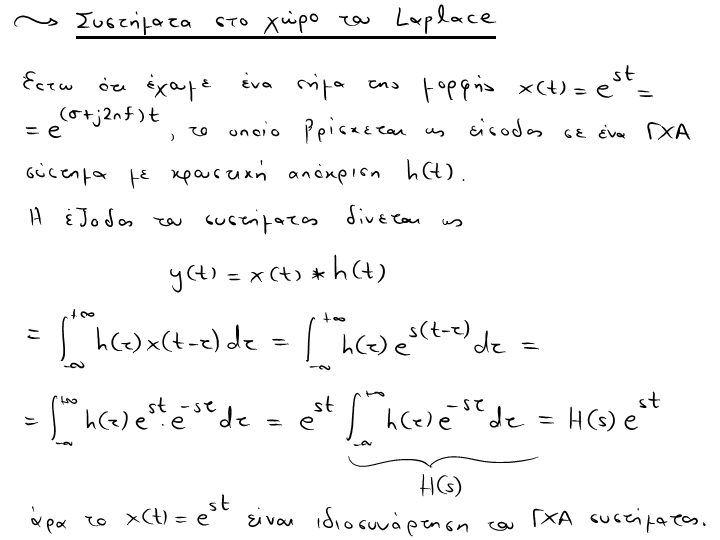 Συστήματα στο χώρο του Laplace
Έστω ότι έχουμε ένα σήμα της μορφής x(t) = e^{st} =
= e^{(σ+j2πf)t}, το οποίο βρίσκεται ως είσοδος σε ένα ΓΧΑ
σύστημα με κρουστική απόκριση h(t).
Η έξοδος του συστήματος δίνεται ως
y(t) = x(t) * h(t)
= ∫_{-∞}^{+∞} h(τ) x(t-τ) dτ = ∫_{-∞}^{+∞} h(τ) e^{s(t-τ)} dτ =
= ∫_{-∞}^{+∞} h(τ) e^{st} · e^{-sτ} dτ = e^{st} ∫_{-∞}^{+∞} h(τ) e^{-sτ} dτ = H(s) e^{st}
H(s)
άρα το x(t) = e^{st} είναι ιδιοσυνάρτηση του ΓΧΑ συστήματος.